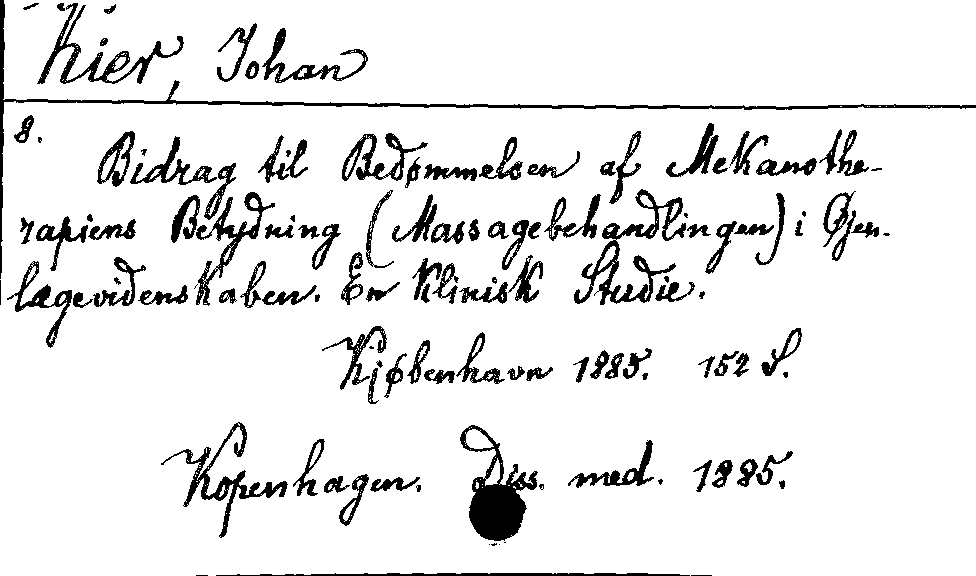 Kier, Johan
8.
Bidrag til Bedømmelsen af Mekanothe-
rapiens Betydning (Massagebehandlingen) i Øjen-
lægevidenskaben. En klinisk Studie.
Kjøbenhavn 1885. 152 S.
Kopenhagen. Diss. med. 1885.